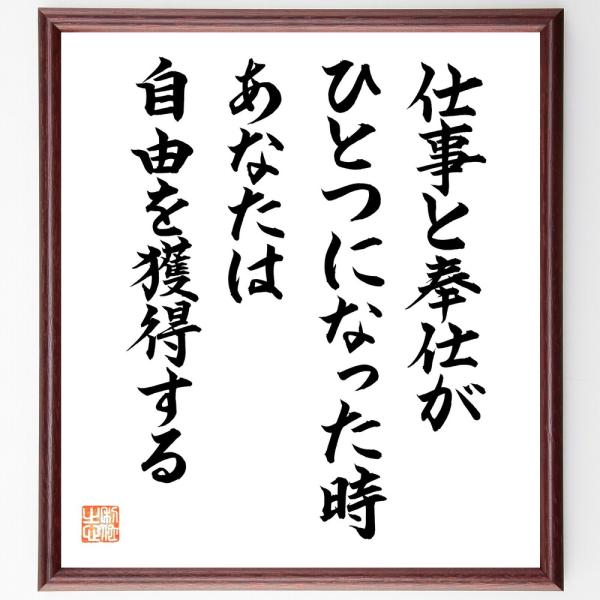 仕事と奉仕が
ひとつになった時
あなたは
自由を獲得する